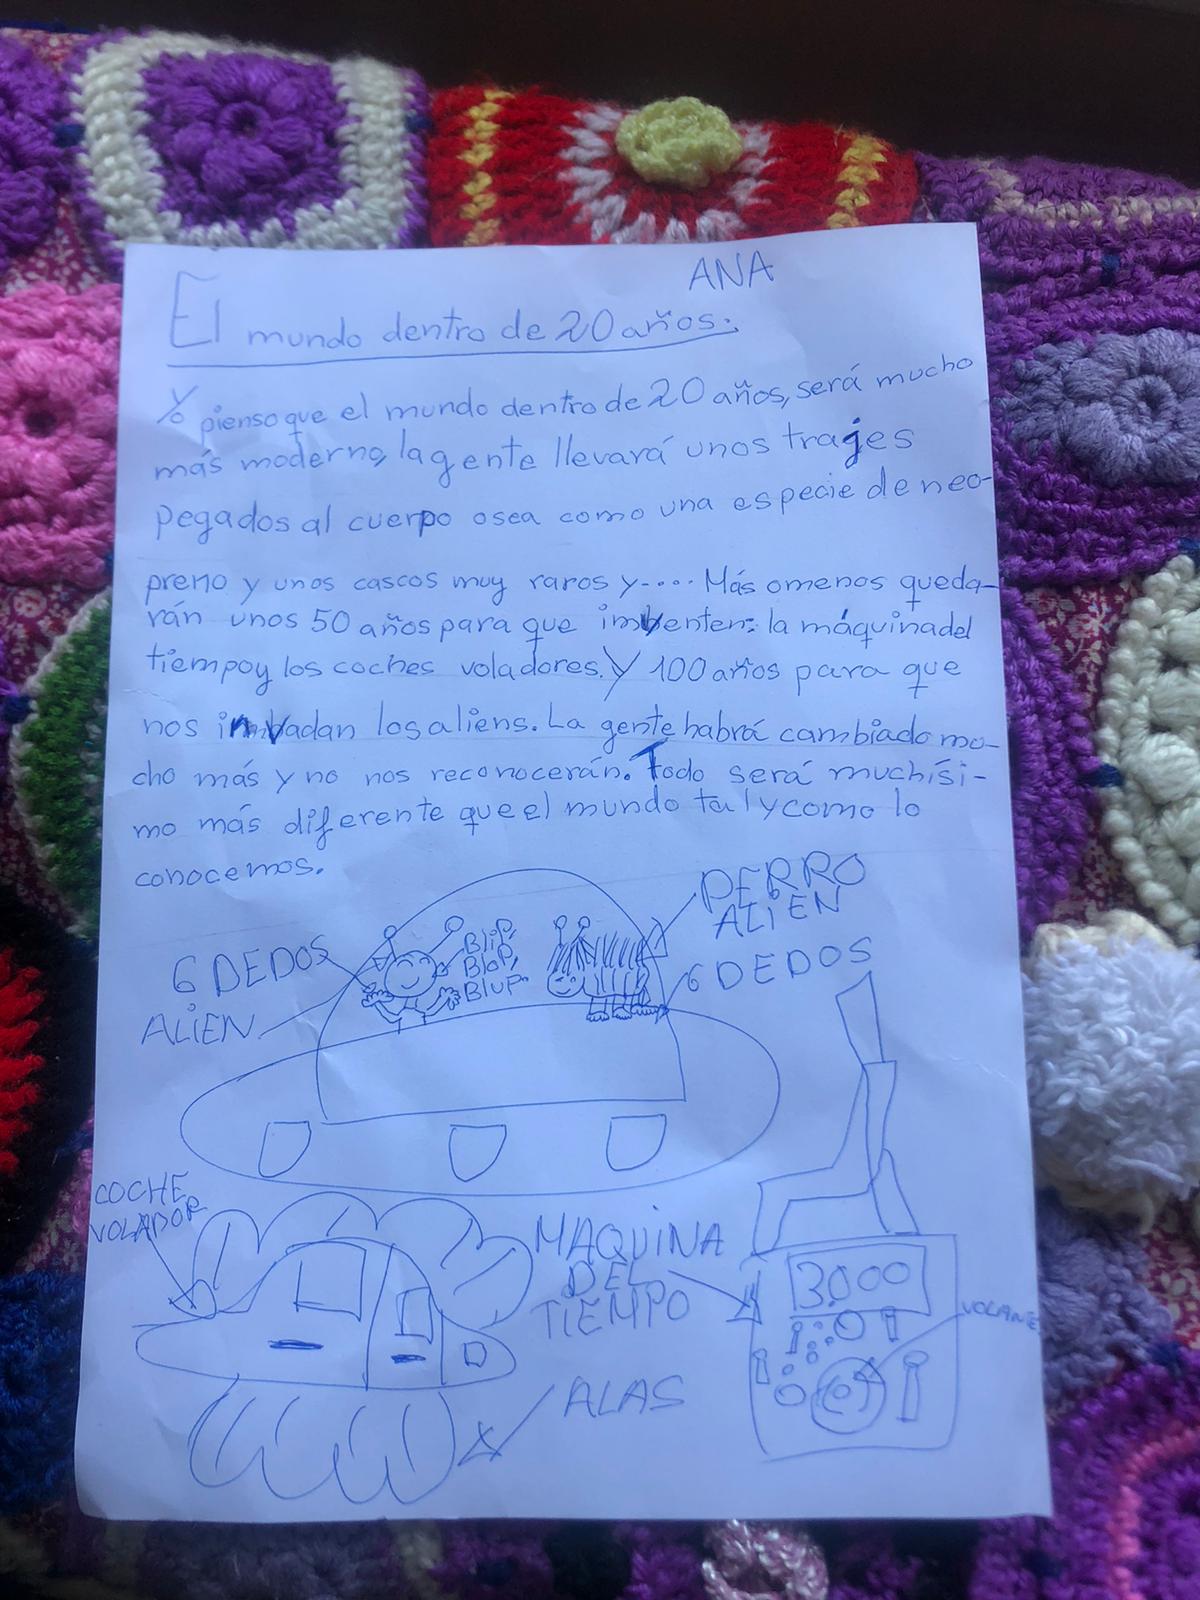 ANA
El mundo dentro de 20 años:
Yo pienso que el mundo dentro de 20 años, será mucho
más moderno, la gente llevará unos trajes
pegados al cuerpo osea como una especie de neo-
preno y unos cascos muy raros y.... Más omenos queda-
rán unos 50 años para que inventen: la máquina del
tiempo y los coches voladores. Y 100 años para que
nos invadan los aliens. La gente habrá cambiado mu-
cho más y no nos reconocerán. Todo será muchísi-
mo más diferente que el mundo tal y como lo
conocemos.
PERRO
ALIEN
6 DEDOS
BLIP,
BLOP,
BLUP.
6 DEDOS
ALIEN
COCHE
VOLADOR
MAQUINA
DEL
TIEMPO
3.000
VOLANE
ALAS